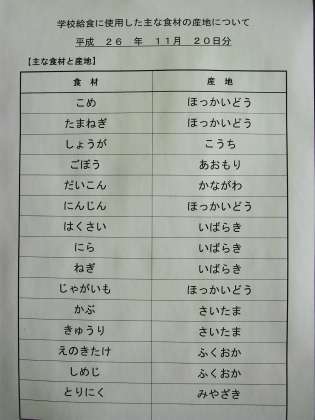 学校給食に使用した主な食材の産地について
平成 26 年 11月 20日分
【主な食材と産地】
食 材 産 地
こめ ほっかいどう
たまねぎ ほっかいどう
しょうが こうち
ごぼう あおもり
だいこん かながわ
にんじん ほっかいどう
はくさい いばらき
にら いばらき
ねぎ いばらき
じゃがいも ほっかいどう
かぶ さいたま
きゅうり さいたま
えのきたけ ふくおか
しめじ ふくおか
とりにく みやざき